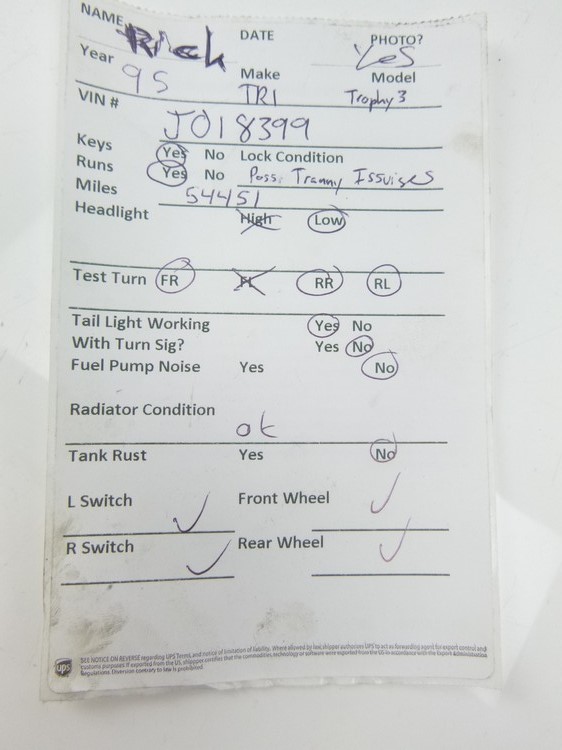 NAME Rick DATE PHOTO? Yes
Year 95 Make TRI Model Trophy 3
VIN # J018399
Keys Yes No Lock Condition
Runs Yes No Poss. Tranny Issuises
Miles 54451
Headlight High Low
Test Turn FR FL RR RL
Tail Light Working Yes No
With Turn Sig? Yes No
Fuel Pump Noise Yes No
Radiator Condition
ok
Tank Rust Yes No
L Switch ✓ Front Wheel ✓
R Switch ✓ Rear Wheel ✓
SEE NOTICE ON REVERSE regarding UPS Terms, and notice of limitation of liability. Where allowed by law, shipper authorizes UPS to act as forwarding agent for export control and
ups customs purposes. If exported from the US, shipper certifies that the commodities, technology or software were exported from the US in accordance with the Export Administration
Regulations. Diversion contrary to law is prohibited.